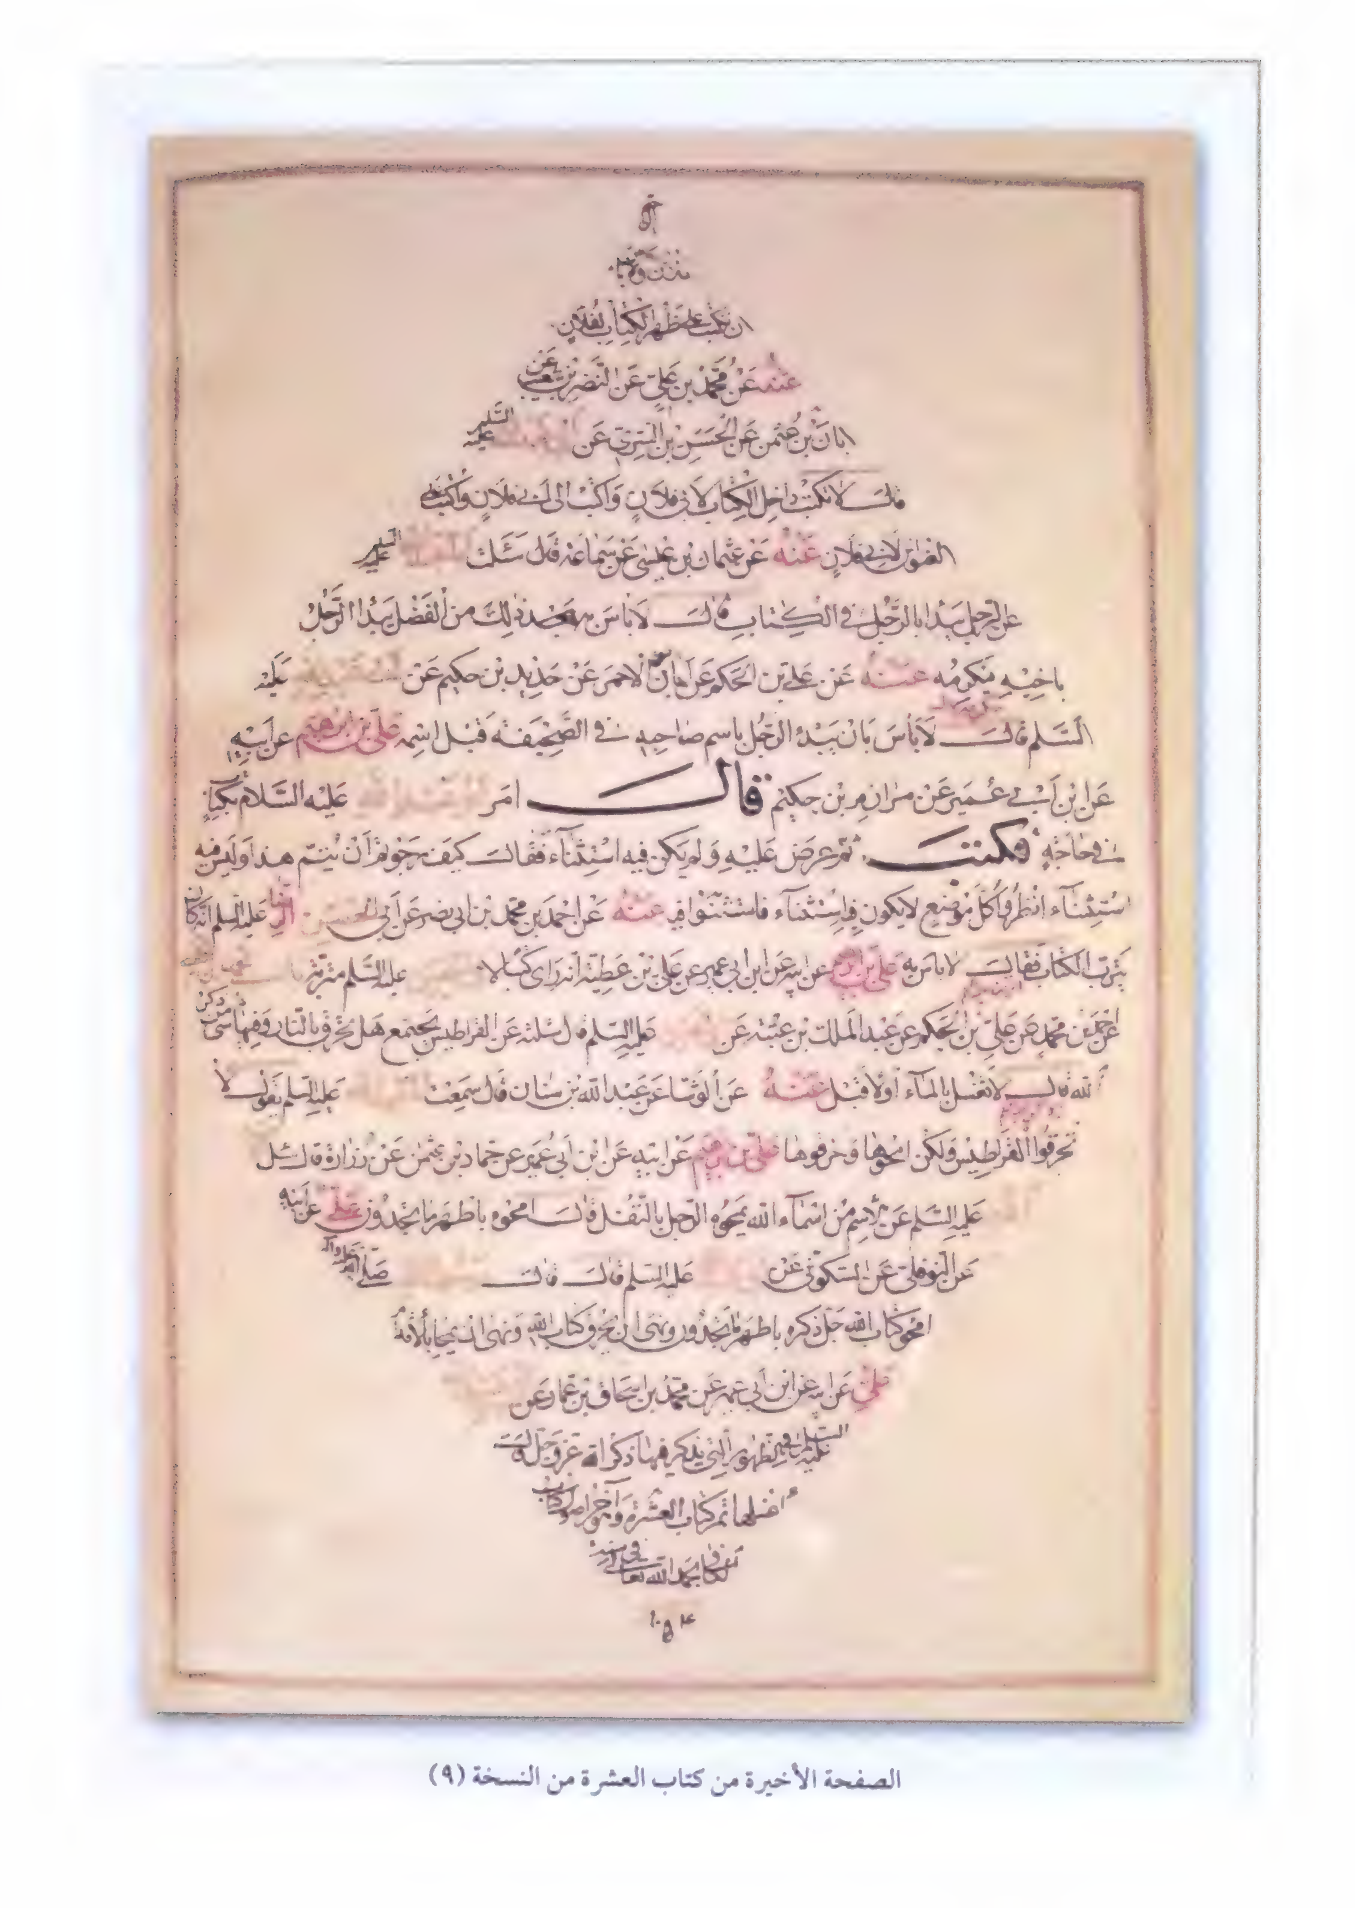 ان تكتب على ظهر الكتاب لفلان
عنه عن محمد بن علي عن النضر بن شعيب عن
ابان بن عثمن عن الحسن بن السري عن ابي عبد الله عليه السلم
قال لا تكتب داخل الكتاب لابي فلان واكتب الى ابي فلان واكتب على
العنوان لابي فلان عنه عن عثمان بن عيسى عن سماعة قال سئلت ابا عبد الله عليه السلم
عن الرجل يبدا بالرجل في الكتاب قال لا باس به ذلك من الفضل يبدا الرجل
باخيه يكرمه عنه عن علي بن الحكم عن ابان بن الاحمر عن حديد بن حكيم عن ابي عبد الله عليه
السلم قال لا باس بان يبدء الرجل باسم صاحبه في الصحيفة قبل اسمه علي بن ابرهيم عن ابيه
عن ابن ابي عمير عن مرازم بن حكيم قال امر ابو عبد الله عليه السلام بكتاب
في حاجة فكتب ثم عرض عليه ولم يكن فيه استثناء فقال كيف رجوتم ان يتم هذا وليس فيه
استثناء انظروا كل موضع لا يكون فيه استثناء فاستثنوا فيه عنه عن احمد بن محمد بن ابي نصر عن ابي الحسن الرضا عليه السلم انه كان
يترب الكتاب فقال لا باس به علي بن ابرهيم عن ابيه عن ابن ابي عمير عن علي بن عطية انه راى كتبا لا عليه السلم متربة
احمد بن محمد عن علي بن الحكم عن عبد الملك بن عتبة عن عليه السلم قال سئلته عن القراطيس تجتمع هل تحرق بالنار وفيها شيء من ذكر
الله قال لا تغسل بالماء اولا قبل عنه عن الوشا عن عبد الله بن سنان قال سمعت ابا عبد الله عليه السلم يقول لا
تحرقوا القراطيس ولكن امحوها وخرقوها علي بن ابرهيم عن ابيه عن ابن ابي عمير عن حماد بن عثمن عن زرارة قال سئل
عليه السلم عن الاسم من اسماء الله يمحوه الرجل بالتفل قال امحوه باطهر ما تجدون علي عن ابيه
عن النوفلي عن السكوني عن عليه السلم قال قال صلى الله عليه وآله
امحو كتاب الله جل ذكره باطهر ما تجدون ونهى ان يحرق كتاب الله ونهى ان يمحا بالاقلام
علي عن ابيه عن ابن ابي عمير عن محمد بن اسحاق بن عمار عن
عليه السلم في الظهور التي يذكر فيها ذكر الله عز وجل قال
اغسلها تم كتاب العشرة
بحمد الله تعالى
١٠٥٤
الصفحة الأخيرة من كتاب العشرة من النسخة (٩)